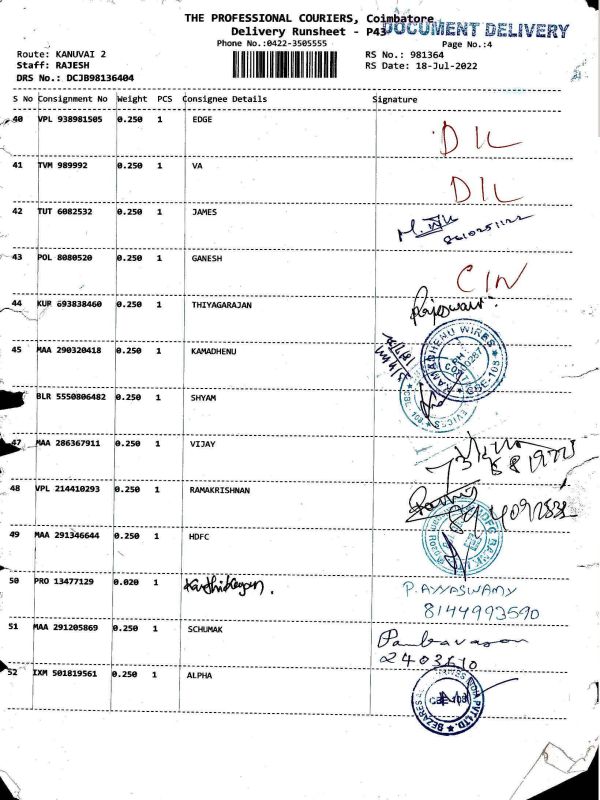 THE PROFESSIONAL COURIERS, Coimbatore
DOCUMENT DELIVERY
Delivery Runsheet - P43
Phone No.:0422-3505555
Page No.:4
Route: KANUVAI 2
RS No.: 981364
Staff: RAJESH
RS Date: 18-Jul-2022
DRS No.: DCJB98136404
S No Consignment No Weight PCS Consignee Details Signature
40 VPL 938981505 0.250 1 EDGE D/L
41 TVM 989992 0.250 1 VA D/L
42 TUT 6082532 0.250 1 JAMES
43 POL 8080520 0.250 1 GANESH C/N
44 KUR 693838460 0.250 1 THIYAGARAJAN Rajeswari
45 MAA 290320418 0.250 1 KAMADHENU
BLR 5550806482 0.250 1 SHYAM
47 MAA 286367911 0.250 1 VIJAY
48 VPL 214410293 0.250 1 RAMAKRISHNAN
49 MAA 291346644 0.250 1 HDFC
HDFC BANK
50 PRO 13477129 0.020 1 Karthikeyan. P. AYYASWAMY
8144993590
51 MAA 291205869 0.250 1 SCHUMAK
2403610
52 IXM 501819561 0.250 1 ALPHA